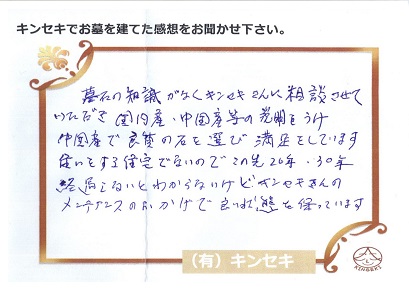 キンセキでお墓を建てた感想をお聞かせ下さい。
墓石の知識がなくキンセキさんに相談させて
いただき 国内産・中国産等の説明をうけ
中国産で良質の石を選び 満足をしています
住いとする住宅で良いのでこの先20年・30年
経過しないとわからないけどキンセキさんの
メンテナンスのおかげで良い状態を保っています
(有) キンセキ
KINSEKI